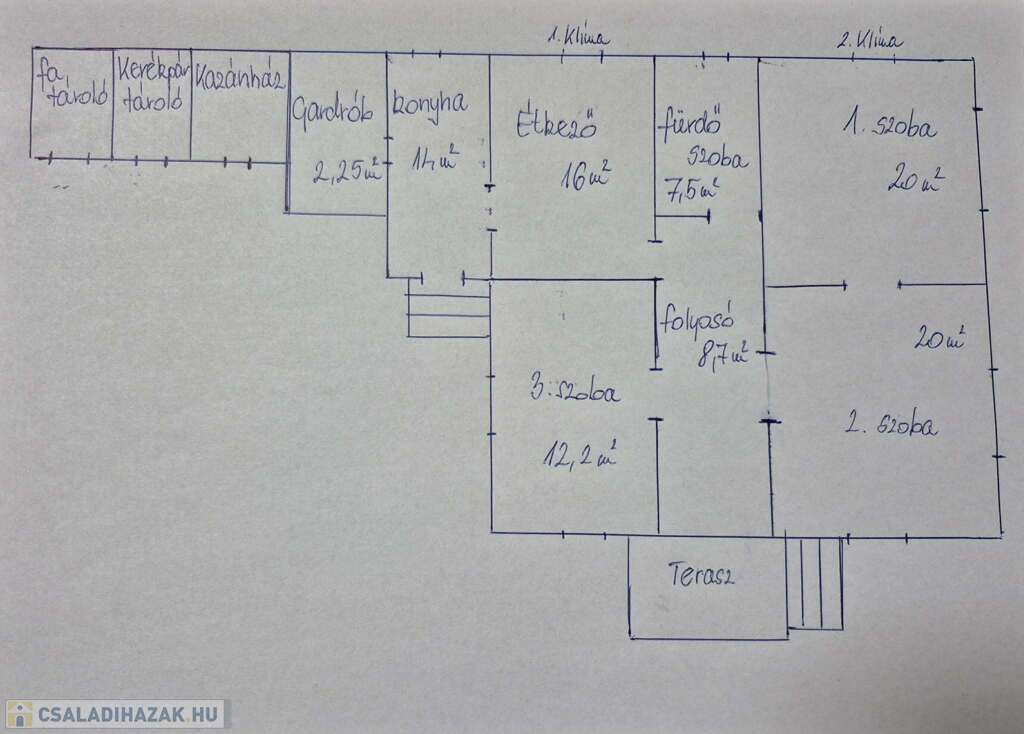 1. Klíma
2. Klíma
fa
tároló
Kerékpár
tároló
Kazánház
Gardrób
2,25 m²
konyha
14 m²
Étkező
16 m²
fürdő
szoba
7,5 m²
1. szoba
20 m²
folyosó
8,7 m²
20 m²
2. szoba
3. szoba
12,2 m²
Terasz
CSALADIHAZAK.HU